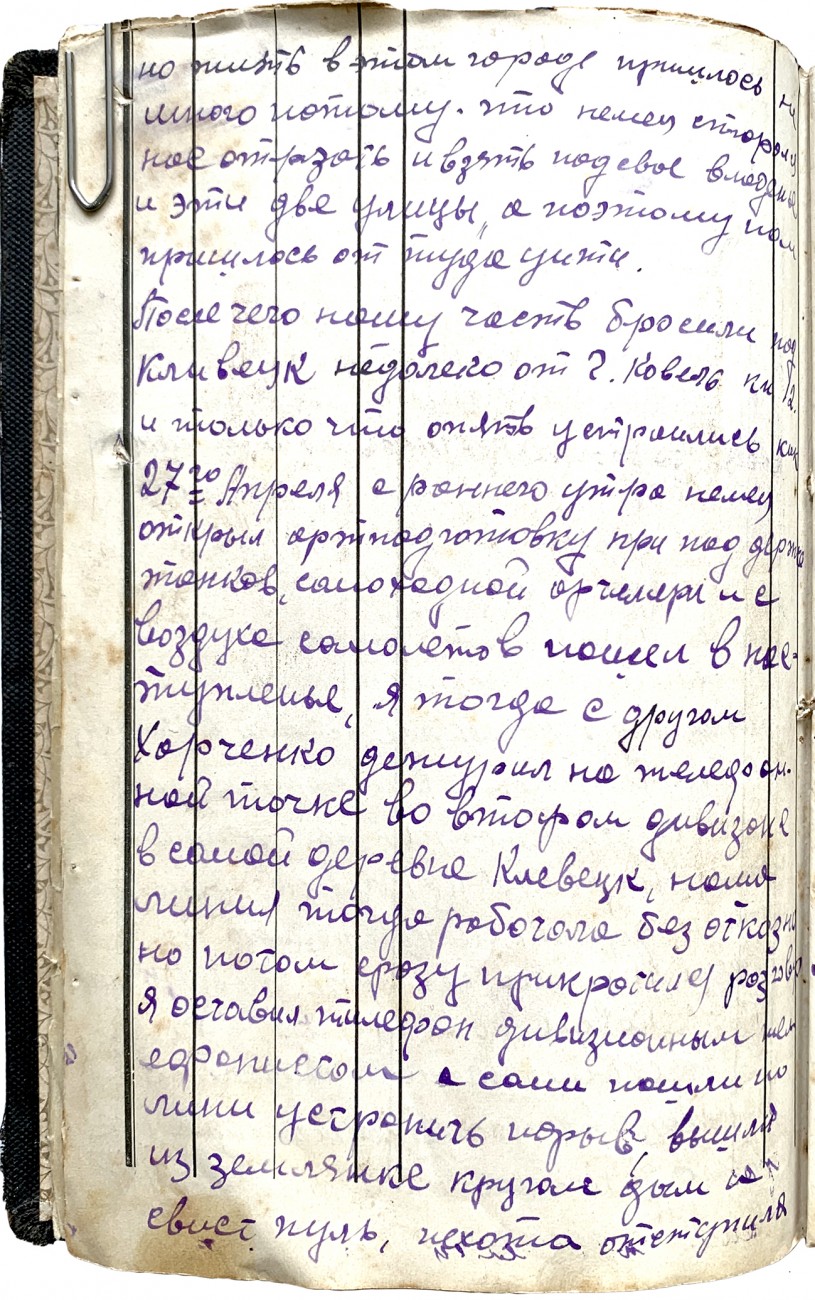 но жить в этом городе пришлось не
много потому. что немец старался
нас отрзать и взять под свое владенье
и эти две улицы, а поэтому нам
пришлось от туда уйти.
После чего нашу часть бросили под
Кливецк недалеко от г. Ковель км 12.
и только что опять устроились как
27го Апреля с раннего утра немец
открыл артподготовку при под держке
танков, самоходной артилери и с
воздуха самолетов пошел в нас-
тупленье, я тогда с другом
Харченко дежурил на телефон-
ной точке во втором дивизоне
в самой деревне Клевецк, наша
линия тогда работала без отказно
но потом сразу прикротился разговор
я оставил тилефон дивизионным
а сами пошли по
лини устранить порыв, вышли
из землянке кругом дым и
свист пуль, пехота отступила